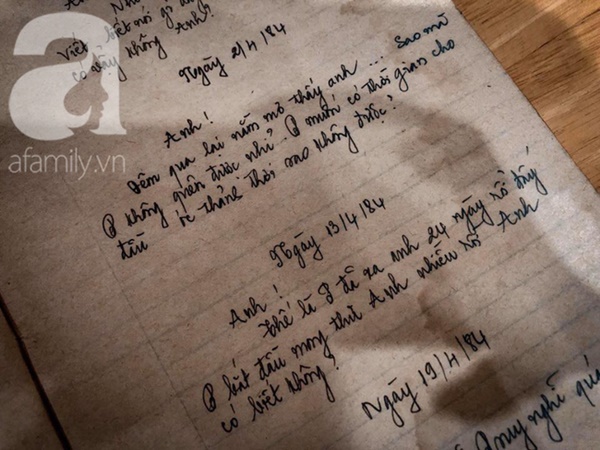 Viết biết nói gì anh
có vậy không Anh?
Ngày 2/4/84
Anh!
Đêm qua lại nằm mơ thấy anh... sao mà
P không quên được nhỉ? P muốn có thời gian cho
đầu óc thảnh thơi sao không được?
Ngày 13/4/84
Anh!
Thế là P đã xa anh 24 ngày rồi đấy
P bắt đầu mong thư Anh nhiều rồi Anh
có biết không?
Ngày 19/4/84
suy nghĩ quá
a
afamily.vn